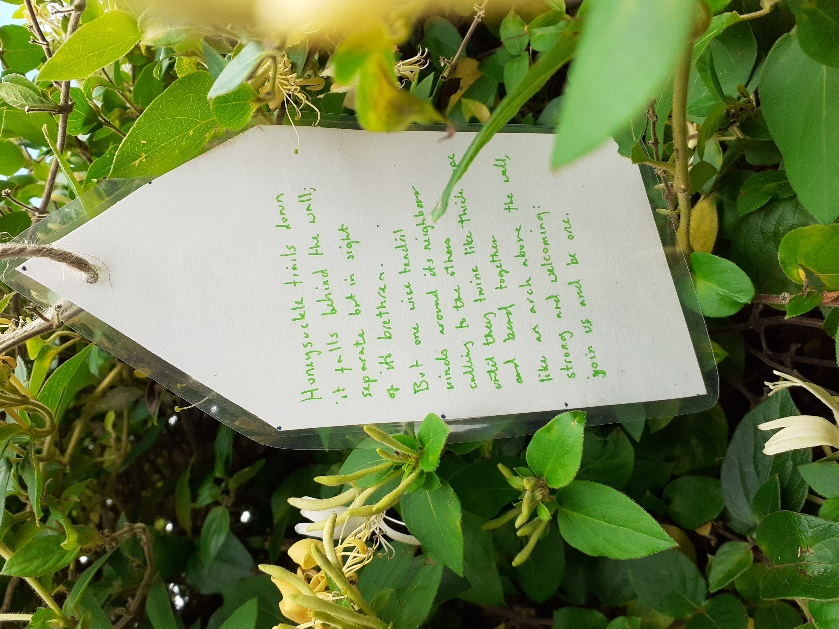 Honeysuckle trails down
it falls behind the wall;
separate but in sight
of its brethren.
But one wise tendril
winds around its neighbor
calling to the others
until they twine like thick
and bend together
like an arch above the wall,
strong and welcoming:
join us and be one.